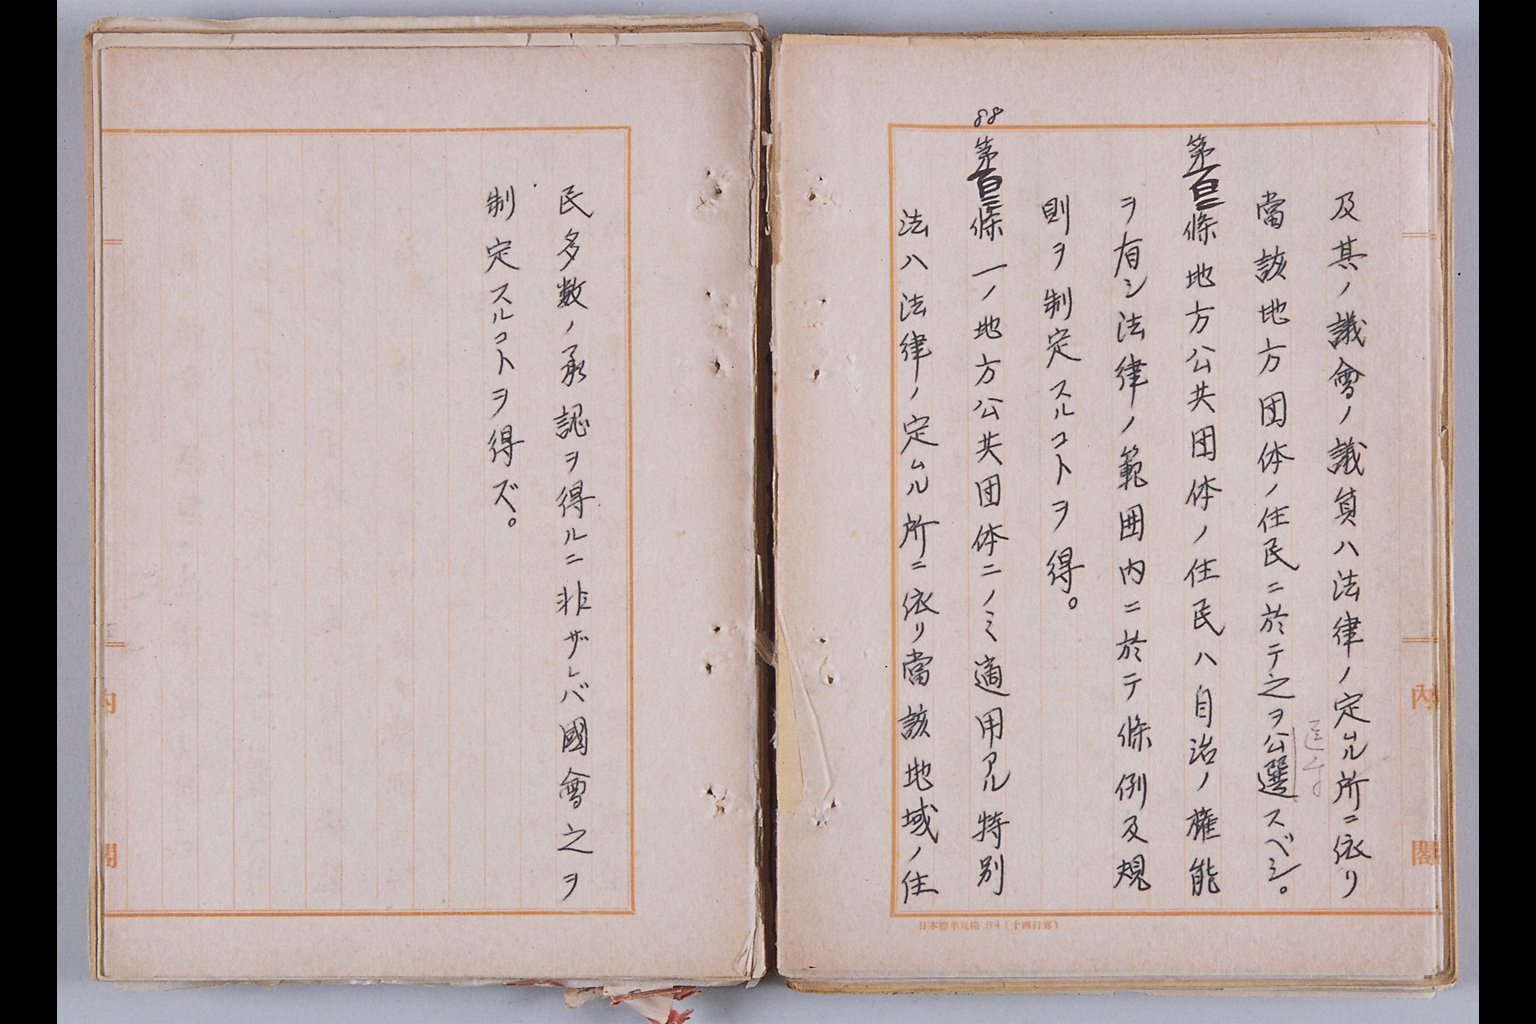 及其ノ議會ノ議員ハ法律ノ定ムル所ニ依リ
當該地方団体ノ住民ニ於テ之ヲ公選スベシ。
第百二條 地方公共団体ノ住民ハ自治ノ権能
ヲ有シ法律ノ範囲内ニ於テ條例及規
則ヲ制定スルコトヲ得。
88
第百三條 一ノ地方公共団体ニノミ適用アル特別
法ハ法律ノ定ムル所ニ依リ當該地域ノ住
内閣
日本標準規格 B4(十四行罫)
民多数ノ承認ヲ得ルニ非ザレバ國會之ヲ
制定スルコトヲ得ズ。
内閣